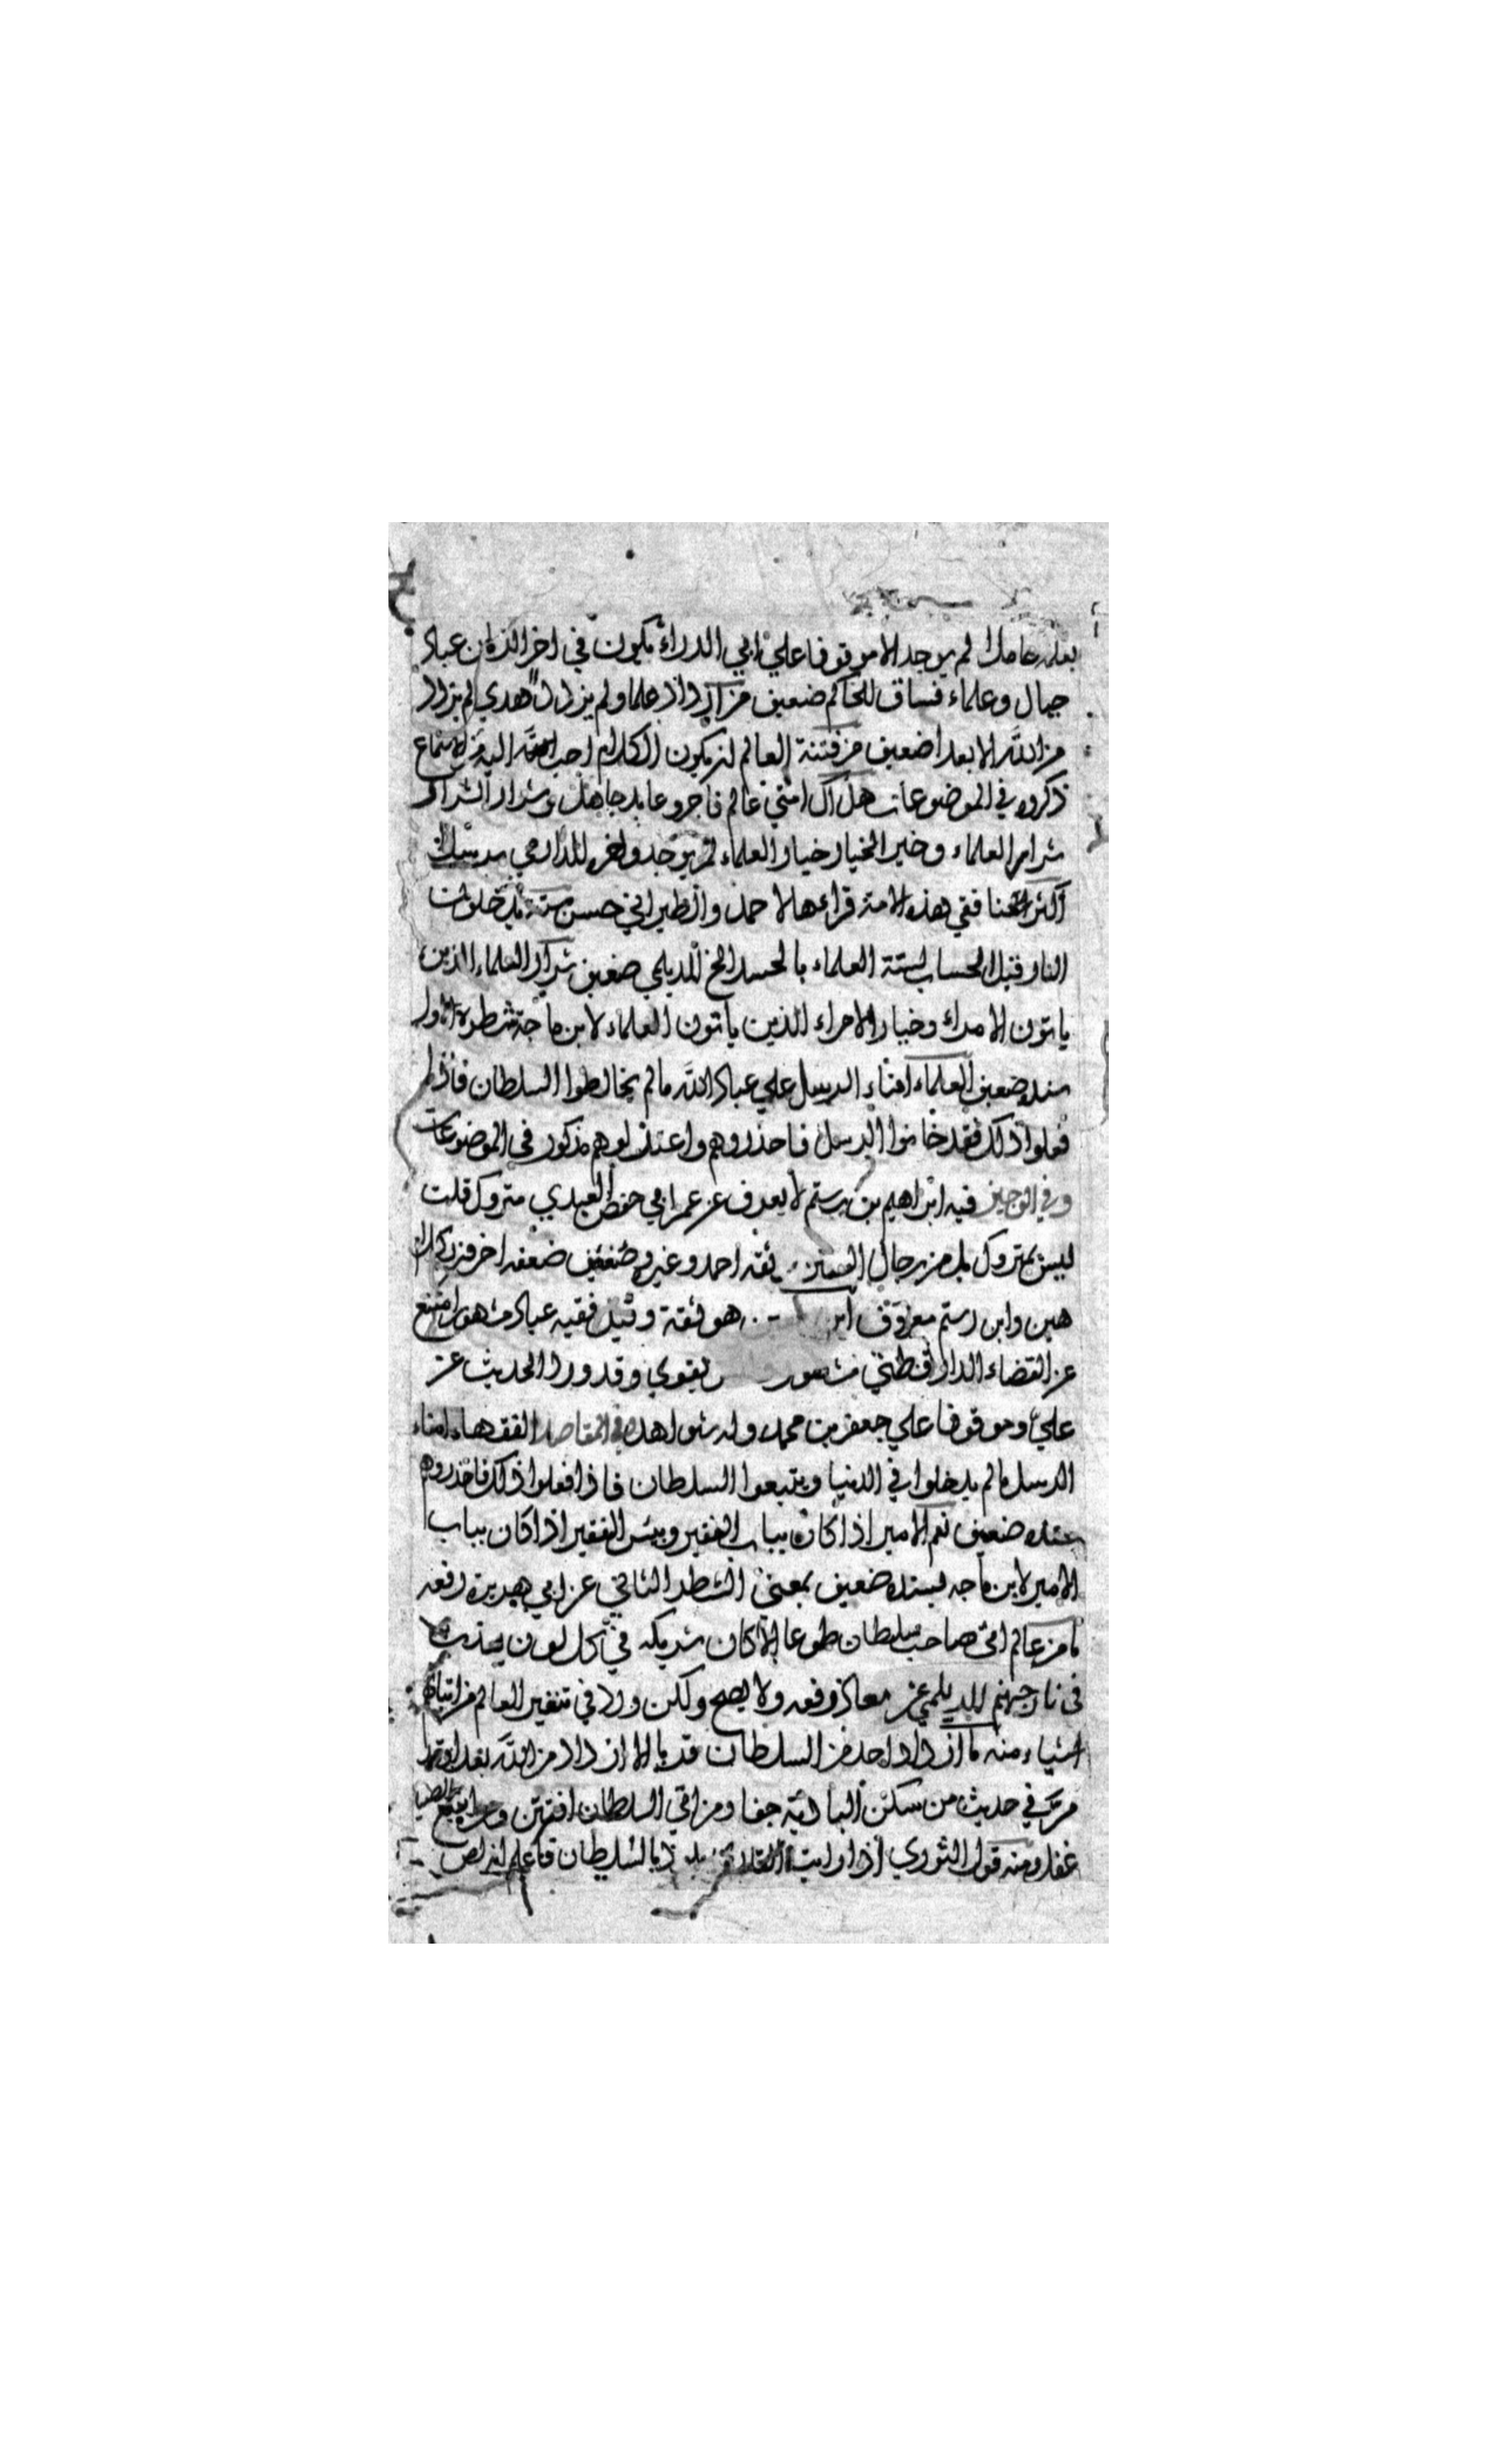 بعلمه عاملا لم يوجد الا موقوفا علي ابي الدرداء يكون في اخر الزمان عباد
جهال وعلماء فساق للحاكم ضعيف من ازداد علما ولم يزدد هدي لم يزدد
من الله الا بعدا ضعيف من فتنة العالم ان يكون الكلام احب اليه من الاستماع
ذكروه في الموضوعات هلاك امتي عالم فاجر وعابد جاهل وشرار الشرار
شرار العلماء وخير الخيار خيار العلماء لم يوجد واخره للدارمي بسند
اكثر منافقي هذه الامة قراءها لاحمد والطبراني حسن ستة يدخلون
النار قبل الحساب لستة العلماء بالحسد الخ للديلمي ضعيف شرار العلماء الذين
ياتون الامراء وخيار الامراء الذين ياتون العلماء لابن ماجة شطره الاول
سنده ضعيف العلماء امناء الرسل علي عباد الله مالم يخالطوا السلطان فاذا
فعلوا ذلك فقد خانوا الرسل فاحذروهم واعتزلوهم مذكور في الموضوعات
وفي الوجيز فيه ابراهيم بن رستم لا يعرف عن عمر ابي حفص العبدي متروك قلت
ليس بمتروك بل من رجال وثقه احمد وغيره وضعيف ضعفه اخر
هين وابن رستم معروف ابن هو ثقة وقيل فقيه عباد مشهور امتنع
عن القضاء الدارقطني مشهور بقوي وقد ورد الحديث عن
علي وموقوفا علي جعفر بن محمد وله شواهد في المقاصد الفقهاء امناء
الرسل مالم يدخلوا في الدنيا ويتبعوا السلطان فاذا فعلوا ذلك فاحذروهم
سنده ضعيف نعم الامير اذا كان بباب الفقير وبئس الفقير اذا كان بباب
الامير لابن ماجه بسند ضعيف بمعني الشطر الثاني عن ابي هريرة رفعه
ما من عالم اتي صاحب سلطان طوعا الا كان شريكه في كل لون يعذب
في نار جهنم للديلمي عن معاذ رفعه ولا يصح ولكن ورد في تنفير العالم من اتيانهم
اشياء منه ما ازداد احد من السلطان قربا الا ازداد من الله بعدا
مر في حديث من سكن البادية جفا ومن اتي السلطان افتتن ومن اتبع الصيد
غفل ومنه قول الثوري اذا رايت القارئ يلوذ بالسلطان فاعلم انه لص